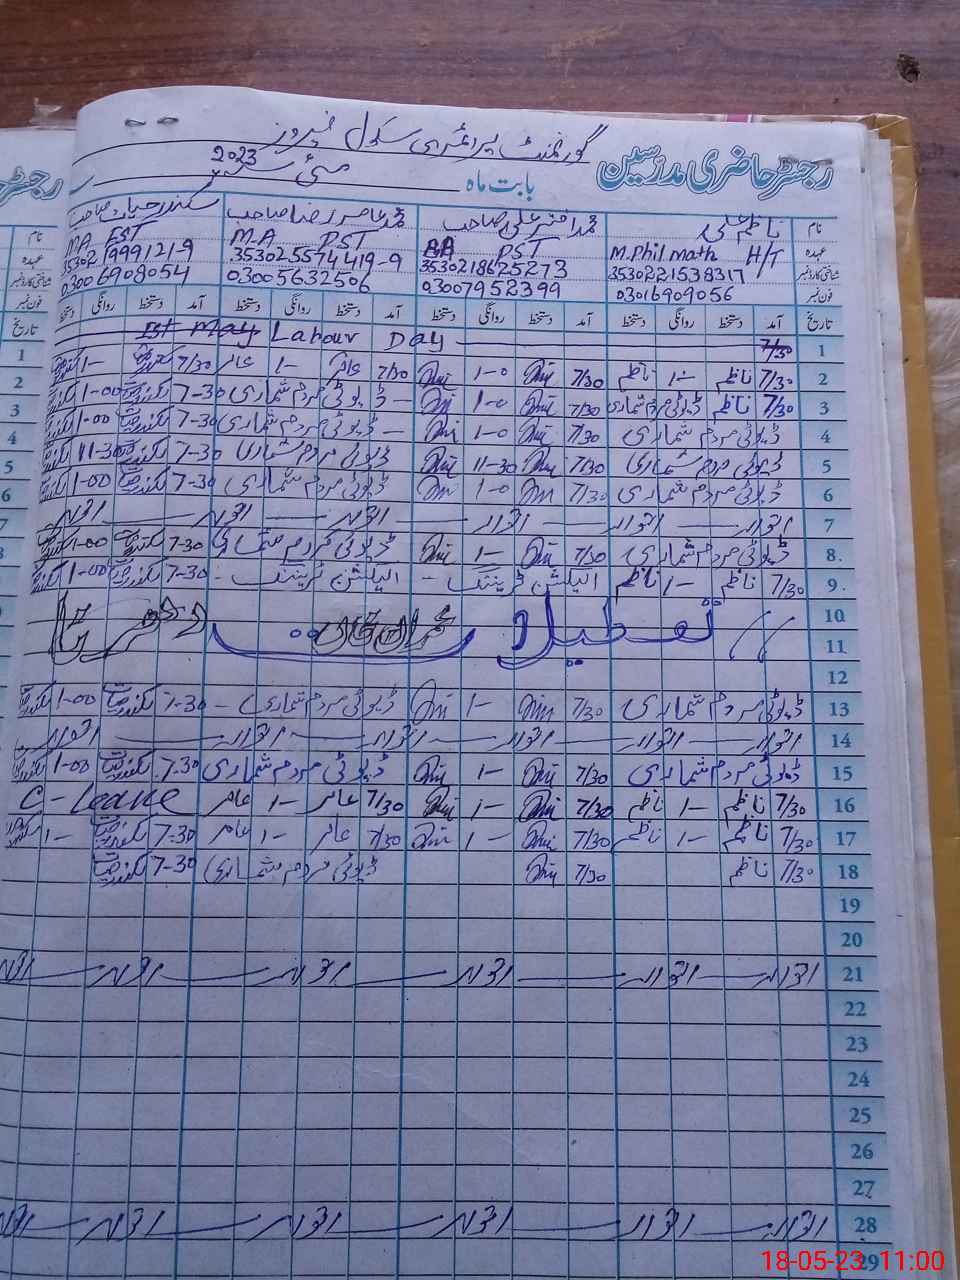 رجسٹر حاضری مدرسین گورنمنٹ پرائمری سکول فیروز
بابت ماہ مئی 2023
نام ناظم علی محمد افتر علی صاحب محمد عامر رضا صاحب سکندر حیات صاحب
عہدہ M.Phil math H/T BA PST M.A PST M.A EST
شناختی کارڈ نمبر 3530221538317 3530218625273 35302-5574419-9 35302 1999121-9
فون نمبر 03016909056 03007952399 03005632506 03006908054
تاریخ آمد دستخط روانگی دستخط آمد دستخط روانگی دستخط آمد دستخط روانگی دستخط آمد دستخط روانگی دستخط
1 7/30 1st May Labour Day
2 7/30 ناظم 1- ناظم 7/30 1-0 7/30 عامر 1- عامر 7/30 1-
3 7/30 ناظم ڈیوٹی مردم شماری 7/30 1-0 ڈیوٹی مردم شماری 7-30 1-00
4 ڈیوٹی مردم شماری 7/30 1-0 ڈیوٹی مردم شماری 7-30 1-00
5 ڈیوٹی مردم شماری 7/30 11-30 ڈیوٹی مردم شماری 7-30 11-30
6 ڈیوٹی مردم شماری 7/30 1-0 ڈیوٹی مردم شماری 7-30 1-00
7 اتوار اتوار اتوار اتوار اتوار اتوار
8 ڈیوٹی مردم شماری 7/30 1- ڈیوٹی مردم شماری 7-30 1-00
9 7/30 ناظم 1- ناظم الیکشن ٹریننگ - الیکشن ٹریننگ - 7-30 1-00
10
11 تعطیلات
12
13 ڈیوٹی مردم شماری 7/30 1- ڈیوٹی مردم شماری - 7-30 1-00
14 اتوار اتوار اتوار اتوار اتوار اتوار
15 ڈیوٹی مردم شماری 7/30 1- ڈیوٹی مردم شماری 7-30 1-00
16 7/30 ناظم 1- ناظم 7/30 1- 7/30 عامر 1- عامر C-Leave
17 7/30 ناظم 1- ناظم 7/30 1- 7/30 عامر 1- عامر 7-30 1-
18 7/30 ناظم 7/30 ڈیوٹی مردم شماری 7-30
19
20
21 اتوار اتوار اتوار اتوار اتوار اتوار
22
23
24
25
26
27
28 اتوار اتوار اتوار اتوار اتوار اتوار
29
18-05-23 11:00